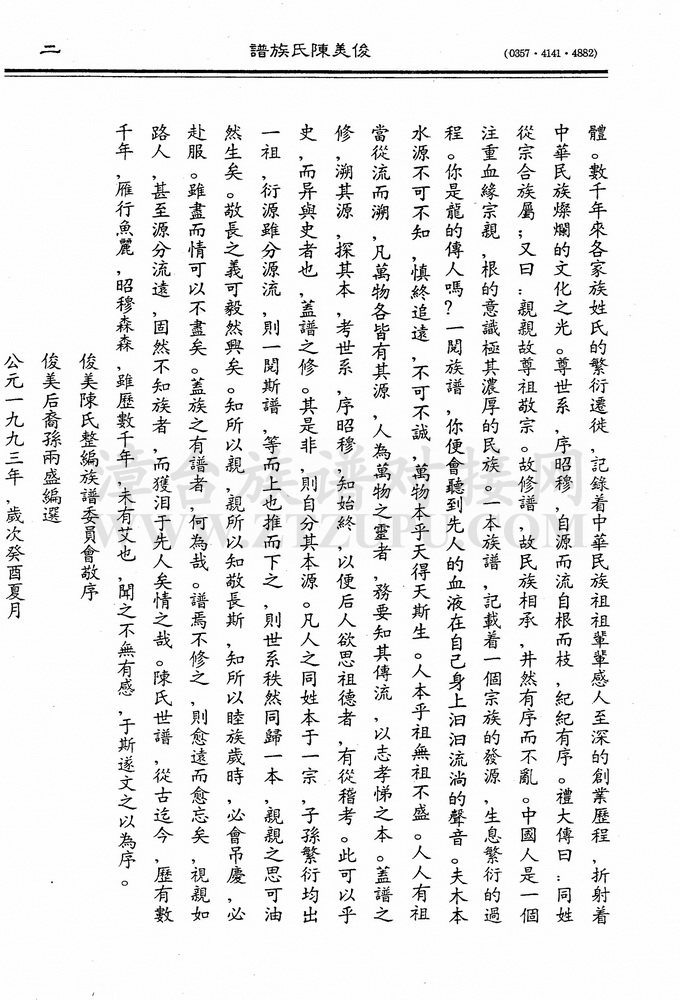 (0357·4141·4882)
俊美陳氏族譜
二
體。數千年來各家族姓氏的繁衍遷徙，記錄着中華民族祖祖輩輩感人至深的創業歷程，折射着
中華民族燦爛的文化之光。尊世系，序昭穆，自源而流自根而枝，紀紀有序。禮大傳曰：同姓
從宗合族屬；又曰：親親故尊祖敬宗。故修譜，故民族相承，井然有序而不亂。中國人是一個
注重血緣宗親，根的意識極其濃厚的民族。一本族譜，記載着一個宗族的發源，生息繁衍的過
程。你是龍的傳人嗎？一閱族譜，你便會聽到先人的血液在自己身上汩汩流淌的聲音。夫木本
水源不可不知，慎終追遠，不可不誠，萬物本乎天得天斯生。人本乎祖無祖不盛。人人有祖
當從流而溯，凡萬物各皆有其源，人為萬物之靈者，務要知其傳流，以志孝悌之本。蓋譜之
修，溯其源，探其本，考世系，序昭穆，知始終，以便后人欲思祖德者，有從稽考。此可以乎
史，而异與史者也，蓋譜之修。其是非，則自分其本源。凡人之同姓本于一宗，子孫繁衍均出
一祖，衍源雖分源流，則一閱斯譜，等而上也推而下之，則世系秩然同歸一本，親親之思可油
然生矣。敬長之義可毅然興矣。知所以親，親所以知敬長斯，知所以睦族歲時，必會吊慶，必
赴服。雖盡而情可以不盡矣。蓋族之有譜者，何為哉。譜焉不修之，則愈遠而愈忘矣，視親如
路人，甚至源分流遠，固然不知族者，而獲泪于先人矣情之哉。陳氏世譜，從古迄今，歷有數
千年，雁行魚麗，昭穆森森，雖歷數千年，未有艾也，聞之不無有感，于斯遂文之以為序。
俊美陳氏整編族譜委員會敬序
俊美后裔孫雨盛編選
公元一九九三年，歲次癸酉夏月
漳台族谱对接网
WWW.ZTZUPU.COM